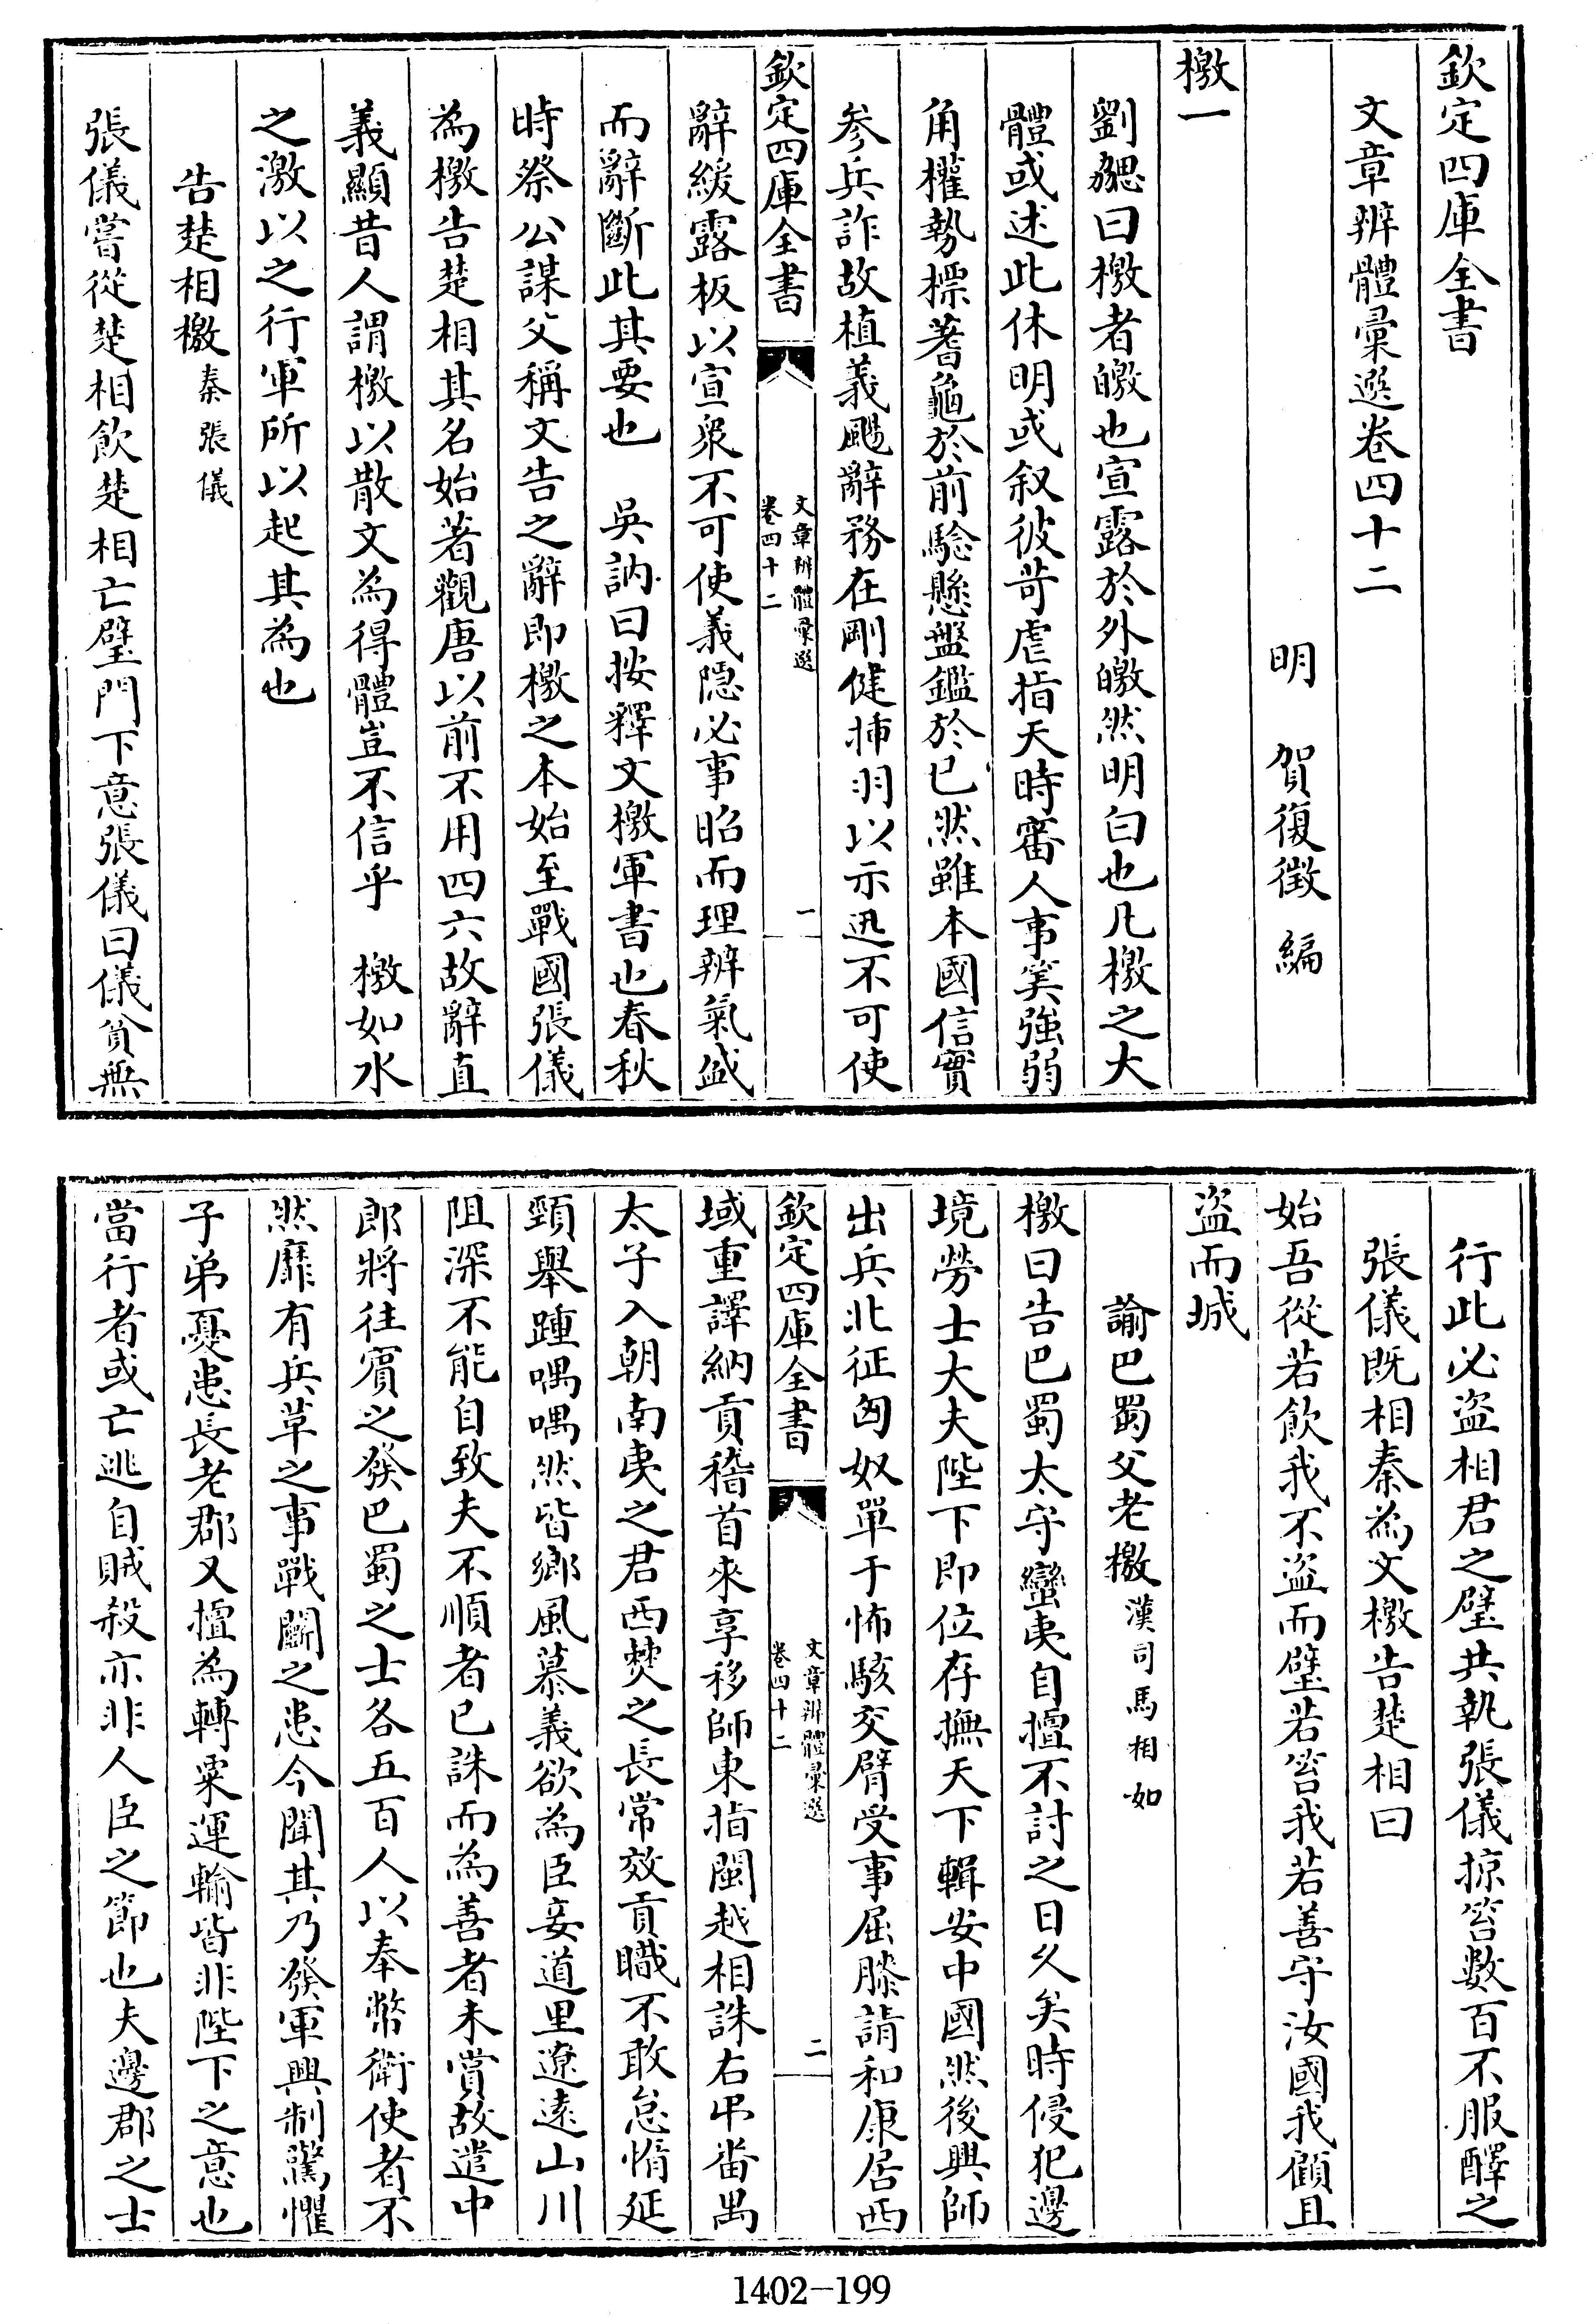 欽定四庫全書
文章辨體彙選卷四十二
明 賀復徵 編
檄一
劉勰曰檄者皦也宣露於外皦然明白也凡檄之大
體或述此休明或叙彼苛虐指天時審人事筭強弱
角權勢標蓍龜於前驗懸盤鑑於已然雖本國信實
參兵詐故植義颺辭務在剛健揷羽以示迅不可使
欽定四庫全書
文章辨體彙選
卷四十二
一
辭緩露板以宣衆不可使義隱必事昭而理辨氣盛
而辭斷此其要也 吳訥曰按釋文檄軍書也春秋
時祭公謀父稱文告之辭即檄之本始至戰國張儀
為檄告楚相其名始著觀唐以前不用四六故辭直
義顯昔人謂檄以散文為得體豈不信乎 檄如水
之激以之行軍所以起其為也
告楚相檄 秦張儀
張儀嘗從楚相飲楚相亡璧門下意張儀曰儀貧無
行此必盜相君之璧共執張儀掠笞數百不服醳之
張儀既相秦為文檄告楚相曰
始吾從若飲我不盜而璧若笞我若善守汝國我顧且
盜而城
諭巴蜀父老檄 漢司馬相如
檄曰告巴蜀太守蠻夷自擅不討之日久矣時侵犯邊
境勞士大夫陛下即位存撫天下輯安中國然後興師
出兵北征匈奴單于怖駭交臂受事屈膝請和康居西
欽定四庫全書
文章辨體彙選
卷四十二
二
域重譯納貢稽首來享移師東指閩越相誅右弔畨禺
太子入朝南夷之君西僰之長常效貢職不敢怠惰延
頸舉踵喁喁然皆鄉風慕義欲為臣妾道里遼遠山川
阻深不能自致夫不順者已誅而為善者未賞故遣中
郎將往賓之發巴蜀之士各五百人以奉幣衛使者不
然靡有兵革之事戰鬬之患今聞其乃發軍興制驚懼
子弟憂患長老郡又擅為轉粟運輸皆非陛下之意也
當行者或亡逃自賊殺亦非人臣之節也夫邊郡之士
1402-199